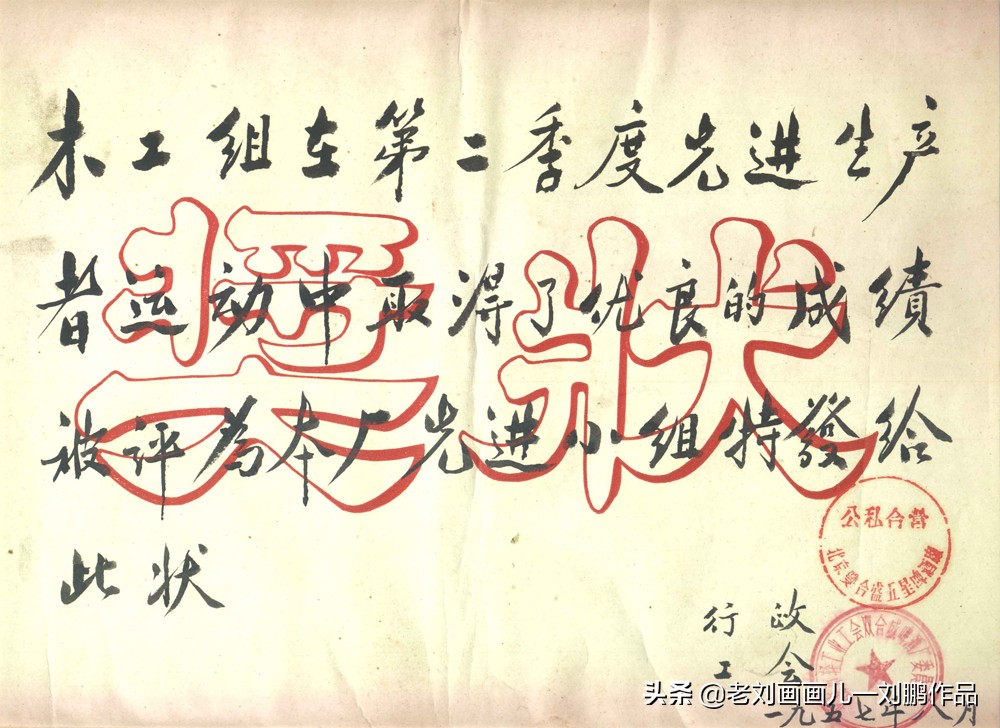 木工组在第二季度先进生产
者运动中取得了优良的成绩
被评为本厂先进小组特發给
此状
奖状
公私合营
北京雙合盛五星啤酒
行政
工会
一九五七年八月
头条 @老刘画画儿一刘鹏作品